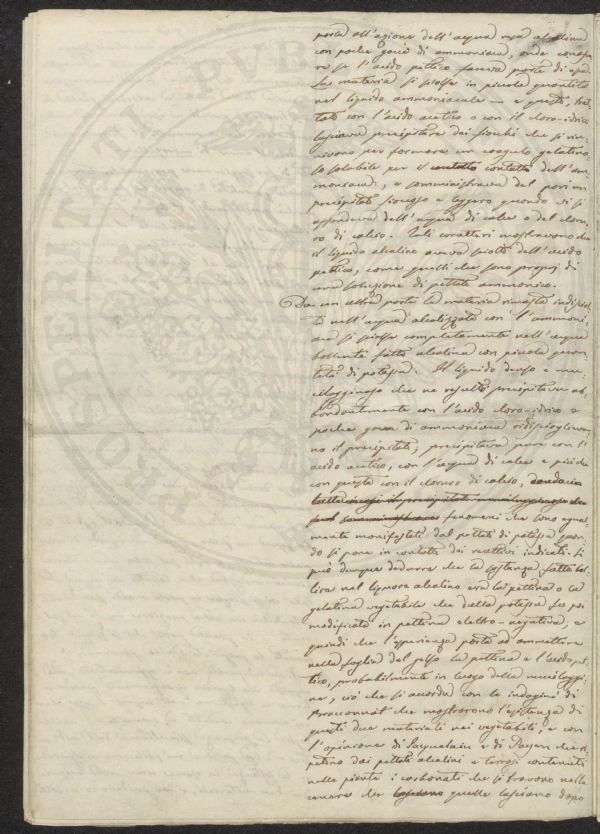 posta all'azione dell'acqua resa alcalina
con poche goccie di ammoniaca, onde conosce-
re se l'acido pettico faceva parte di essa.
La materia si sciolse in piccola quantità
nel liquido ammoniacale — e questo, trat-
tato con l'acido acetico o con il cloro-idrico
lasciava precipitare dei fiocchi che si riu-
nivano per formare un coagulo gelatino-
so solubile per il contatto contatto dell'am-
moniaca, e somministrava del pari un
precipitato fioccoso e leggero quando vi si
affondeva dell'acqua di calce o del cloru-
ro di calcio. Tali caratteri mostravono che
il liquido alcalino aveva sciolto dell'acido
pettico, come quelli che sono proprj di
una soluzione di pettato ammonico.
Da un altra parte la materia rimasta indisciol-
ta nell'acqua alcalizzata con l'ammoni-
aca si sciolse completamente nell'acqua
bollente fatta alcalina con piccola quan-
tità di potassa. Il liquido denso e mu-
cilagginoso che ne resultò precipitava ab-
bondantemente con l'acido cloro-idrico e
poche gocce di ammoniaca ridiscioglievano
no il precipitato; precipitava pure con l'
acido acetico, con l'acqua di calce e più che
con questa con il cloruro di calcio,
fenomeni che sono egual-
mente manifestati dal pettato di potassa quan-
do si pone in contatto dei reattivi indicati. Si
può dunque dedurre che la sostanza fatta bol-
lire nel liquore alcalino era la pettina o la
gelatina vegetabile che dalla potassa fu poi
modificata in pettina elettro-negativa, e
quindi che l'esperienza porta ad ammettere
nella foglia del gelso la pettina e l'acido pet-
tico, probabilmente in luogo della mucilaggi-
ne, ciò che si accorda con le indagini di
Braconnot che mostrarono l'esistenza di
questi due materiali nei vegetabili, e con
l'opinione di Jacquelain e di Payen che ri-
petino dai pettati alcalini e terrosi contenuti
nelle piante i carbonati che si trovono nelle
cenere che lasciano quelle lasciano dopo